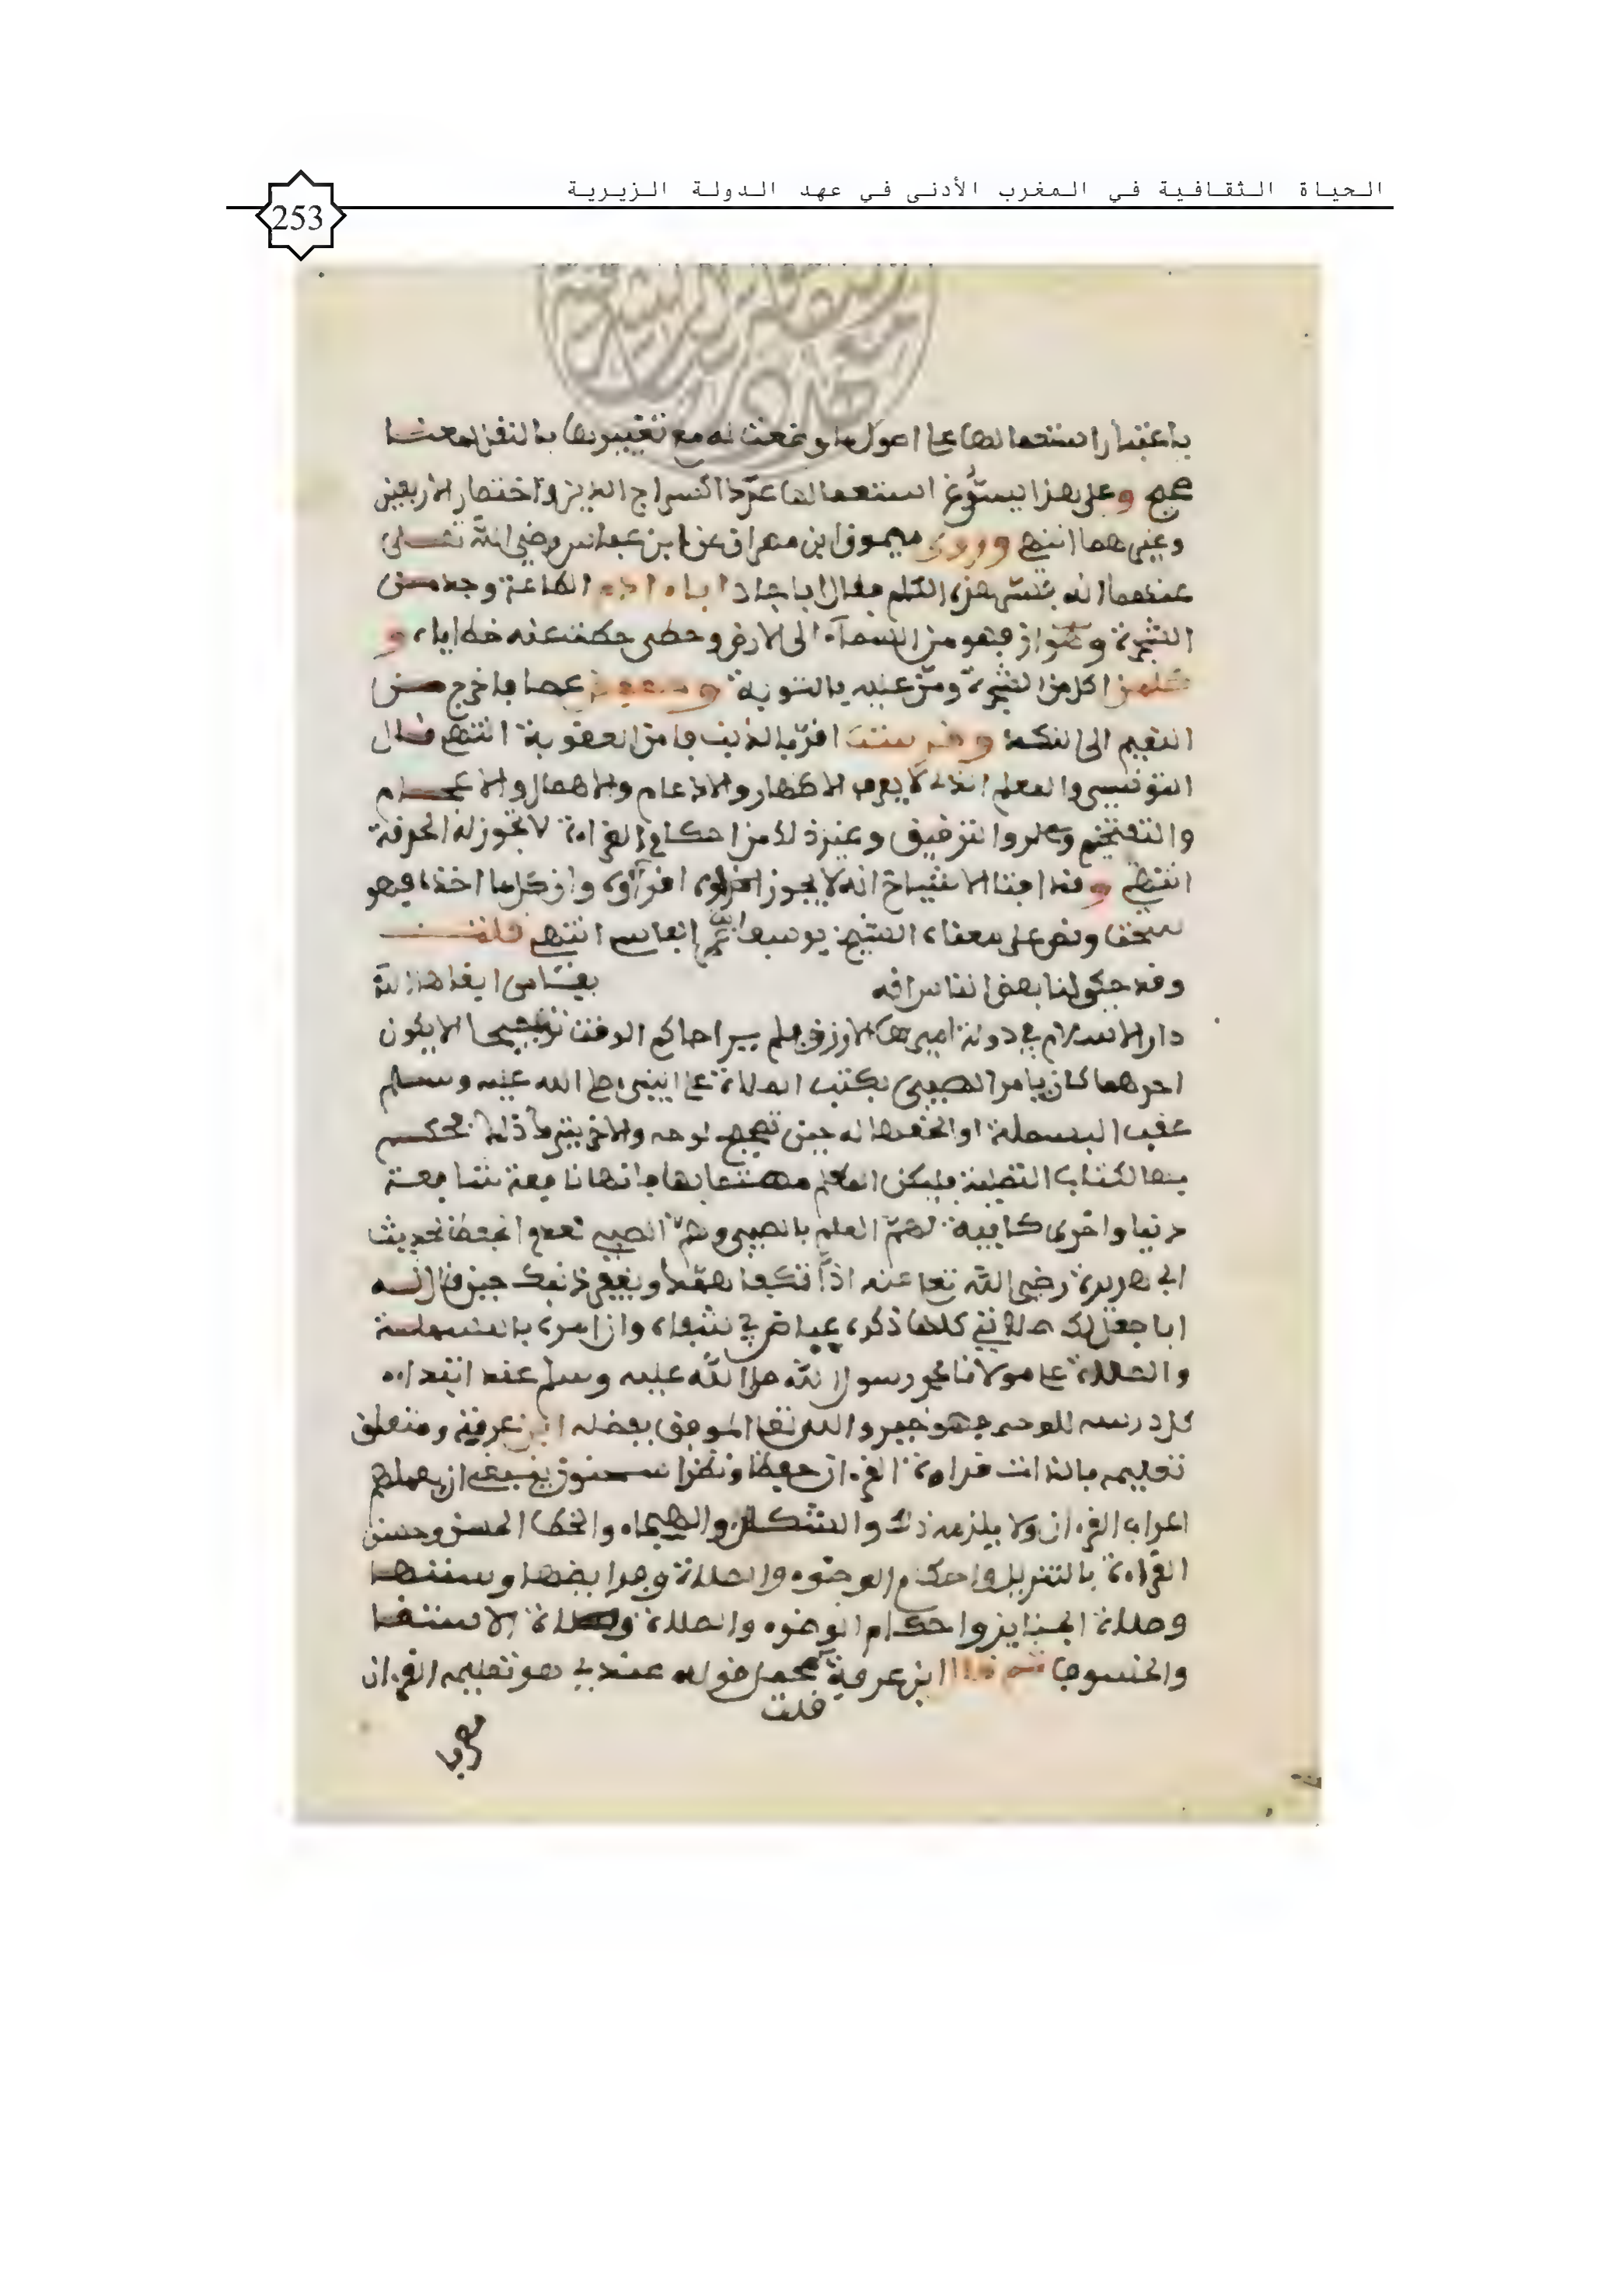 الحياة الثقافية في المغرب الأدنى في عهد الدولة الزيرية
253
باعتبار استعمالها على اصول ما وضعت له مع تغييرها بالنقل لمعنا
صحيح وعلى هذا يسوغ استعمالها عددا كسراج الدين واختصار الاربعين
وغيرهما انتهى وروى ميمون ابن مهران عن ابن عباس رضي الله تعالى
عنهما انه فسر هذه الكلم فقال اباجاد ابا ادم الطاعة وجد من
الشجرة وهوز فهو من السماء الى الارض وحطى حطت عنه خطاياه و
كلمن اكل من الشجرة ومن عليه بالتوبة وسعفص عصا فاخرج من
النعيم الى النكد وقرست اقر بالذنب فامن العقوبة انتهى قال
التونسي والمعلم الذي لا يعرف الاظهار والادغام والاهمال والاعجام
والتفخيم والترقيق وغير ذلك من احكام القراءة لا تجوز له الحرفة
انتهى وقد افتا الاشياخ انه لا يجوز وان كل ما اخذه فهو
سحت ونص على معناه الشيخ يوسف ابن عمر الفاسي انتهى قلت
وقد حكى لنا بعض الناس انه بفاس ايضا هذا لة
دار الاسلام في دولة اميرها الازرق معلم حاكم الوقت الا يكون
احدهما كان يامر الصبي بكتب الصلاة على النبي صلى الله عليه وسلم
عقب البسملة او الحفظ له حين تصحيح لوحه والاخر يترك ذلك فحكم
بها لكتاب فليكن المعلم بها فانها نافعة شافعة
دنيا واخرى كافية لهم المعلم بالصبي وهم الصبي الحفظ لحديث
ابي هريرة رضي الله تعا عنه اذا تكفا همك ويغفر ذنبك حين قال له
افاجعل لك صلاتي كلها ذكره عياض في شفاه وان امره بالبسملة
والصلاة على مولانا محمد رسول الله صلى الله عليه وسلم عند ابتداء
كل درسه للوحه فهو خير والله تعا الموفق بفضله ابن عرفة ومتعلق
تعليمه بالذات قراءة القرءان حفظا ونظرا سحنون ينبغي ان يعلمهم
اعراب القرءان ولا يلزمه ذلك والشكل والهجاء والخط الحسن وحسن
القراءة بالترتيل واحكام الوضوء والصلاة وفرايضها وسننها
وصلاة الجنايز واحكام الوضوء والصلاة وصلاة الاستسقا
والخسوف ثم قال ابن عرفة محمل قوله عندي هو تعليمه القرءان
قلت